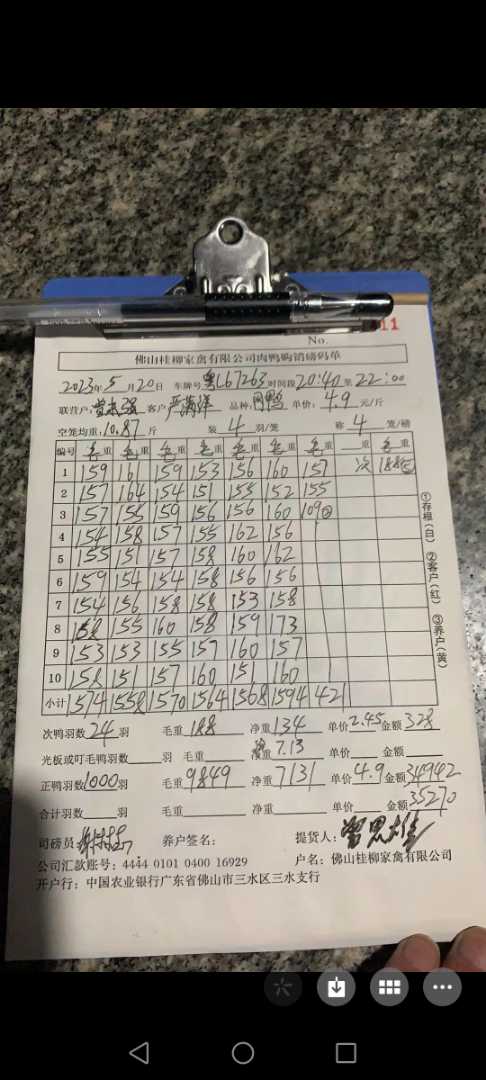 No. 11
佛山桂柳家禽有限公司肉鸭购销磅码单
2023年5月20日 车牌号 粤L67263 时间段 20:40至22:00
联营户: 客户: 严满洋 品种: 价: 4.9 元/斤
空笼均重: 10.87 斤 装 4 羽/笼 称 4 笼/磅
编号 毛重 毛重 毛重 毛重 毛重 毛重 毛重 重 毛重
1 159 161 159 153 156 160 157 次 188
2 157 164 154 151 155 152 155
3 157 155 159 156 156 160 109②
4 154 158 157 155 162 156
5 155 151 157 158 160 162
6 159 154 154 158 156 156
7 154 156 158 158 153 158
8 158 155 160 158 159 173
9 153 153 155 157 160 157
10 158 151 157 160 151 160
小计 1574 1558 1570 1564 1568 1594 421
次鸭羽数 24 羽 毛重 188 净重 134 单价 2.45 金额 328
光板或叮毛鸭羽数 羽 毛重 净重 7.13 单价 金额
正鸭羽数 1000 羽 毛重 9849 净重 7131 单价 4.9 金额 34942
合计羽数 羽 毛重 净重 单价 金额 35270
司磅员: 养户签名: 提货人:
公司汇款账号: 4444 0101 0400 16929 户名: 佛山桂柳家禽有限公司
开户行: 中国农业银行广东省佛山市三水区三水支行
①存根(白) ②客户(红) ③养户(黄)